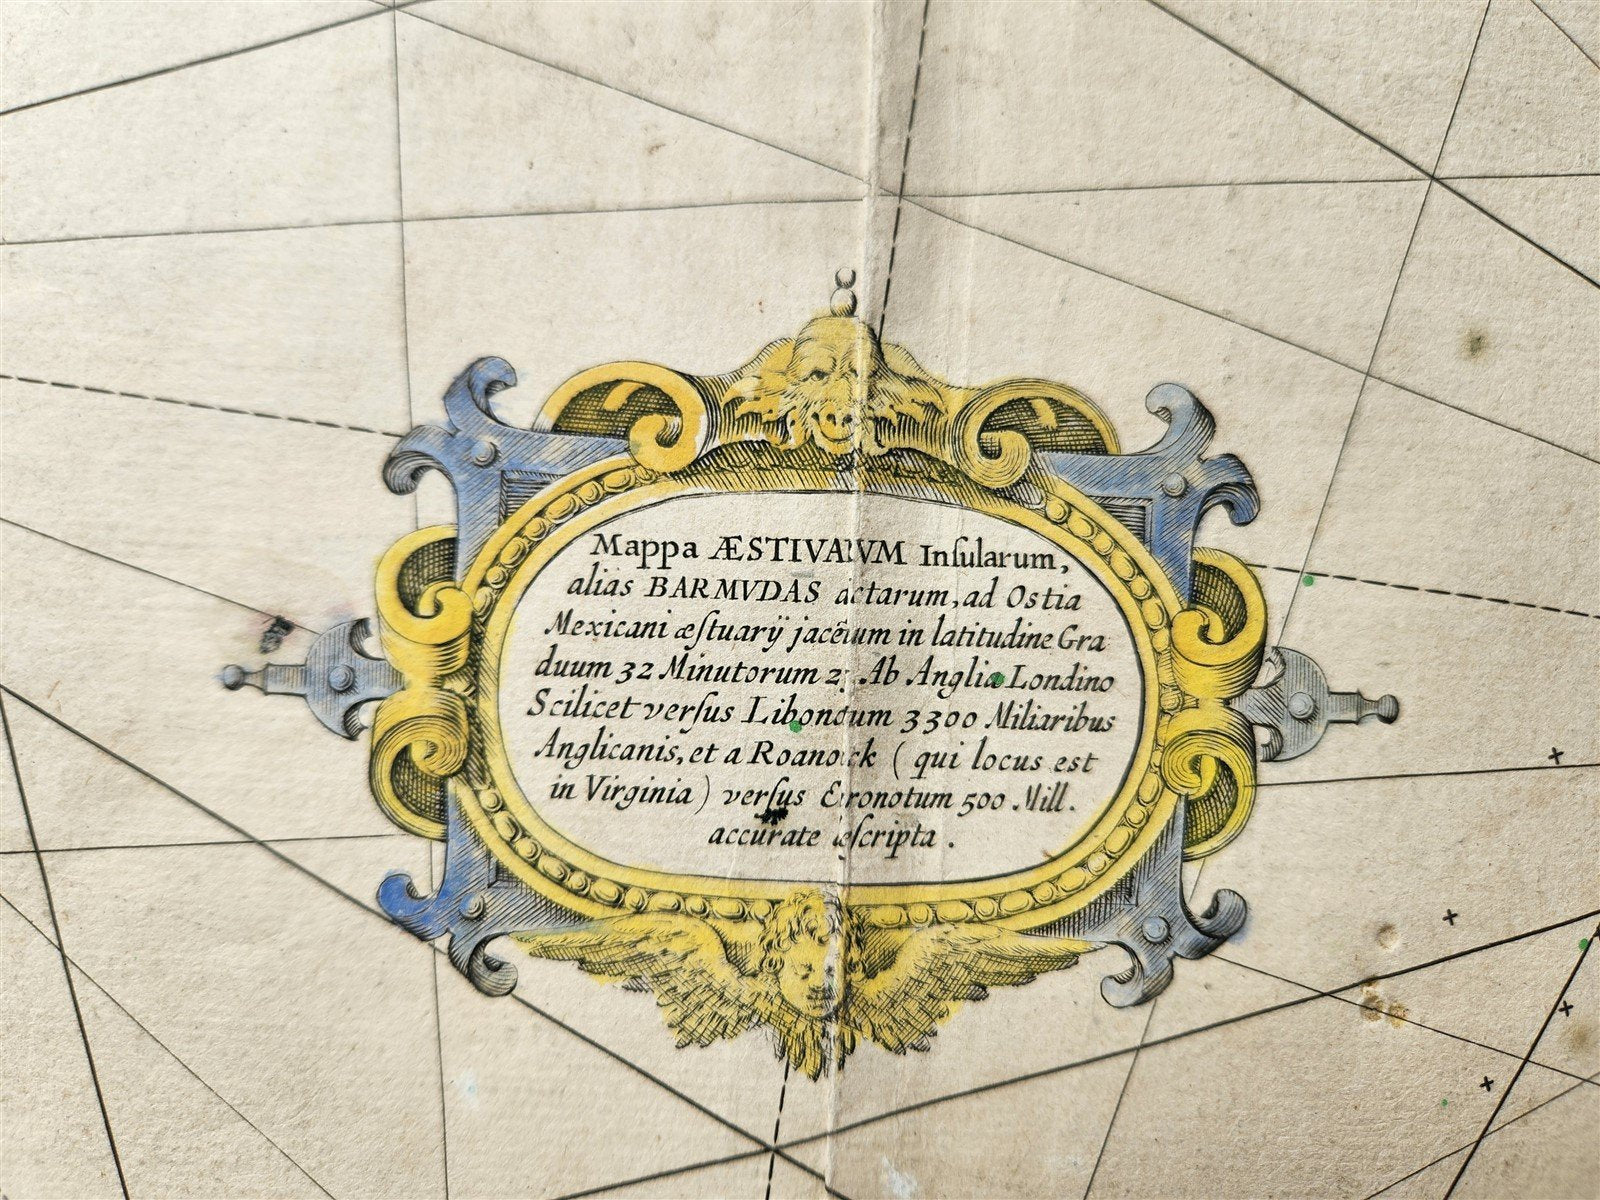 Mappa ÆSTIVARVM Inſularum,
alias BARMVDAS dictarum, ad Ostia
Mexicani æſtuarij jacẽtium in latitudine Gra
duum 32 Minutorum 25. Ab Anglia Londino
Scilicet verſus Libonotum 3300 Miliaribus
Anglicanis, et a Roanoack ( qui locus est
in Virginia ) verſus Euronotum 500 Mill.
accurate deſcripta .